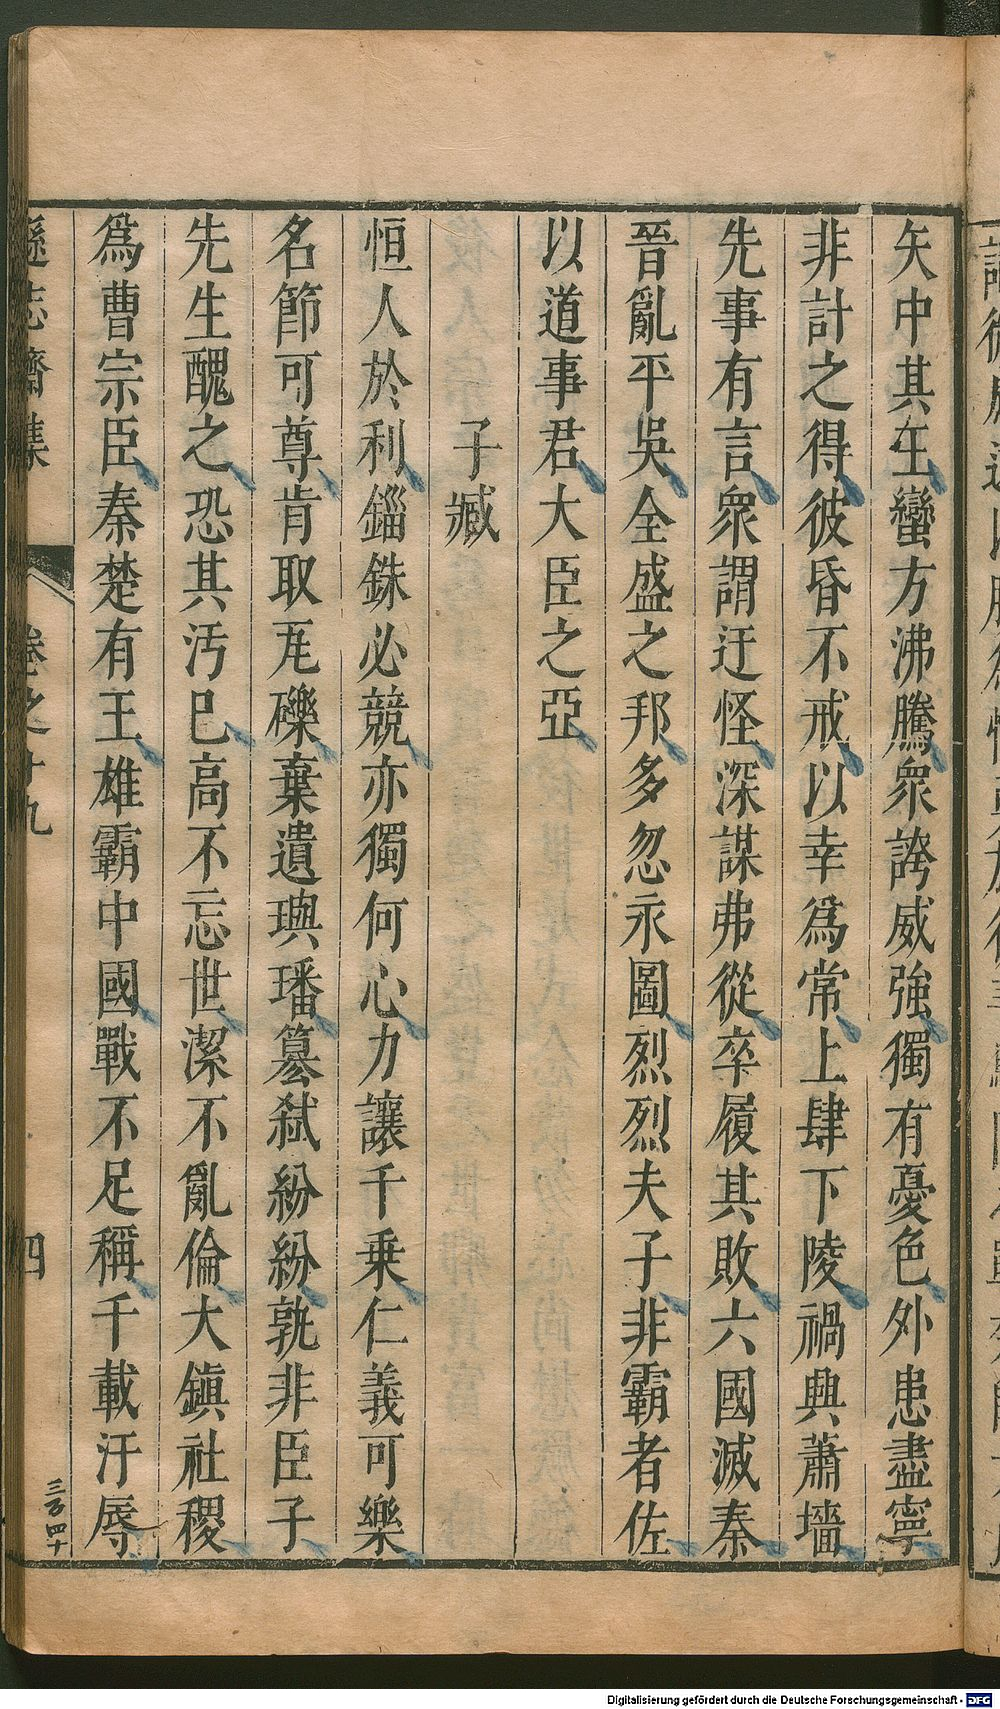 矢中其王蠻方沸騰衆誇威強獨有憂色外患盡寧
非計之得彼昏不戒以幸爲常上肆下陵禍興蕭墻
先事有言衆謂迂怪深謀弗從卒履其敗六國滅秦
晉亂平吳全盛之邦多忽永圖烈烈夫子非霸者佐
以道事君大臣之亞
子臧
恒人於利錙銖必競亦獨何心力讓千乗仁義可樂
名節可尊肯取瓦礫棄遺璵璠簒弑紛紛孰非臣子
先生醜之恐其汚已高不忘世潔不亂倫大鎮社稷
爲曹宗臣秦楚有王雄霸中國戰不足稱千載汙辱
遜志齋集
卷之十九
四
Digitalisierung gefördert durch die Deutsche Forschungsgemeinschaft - DFG